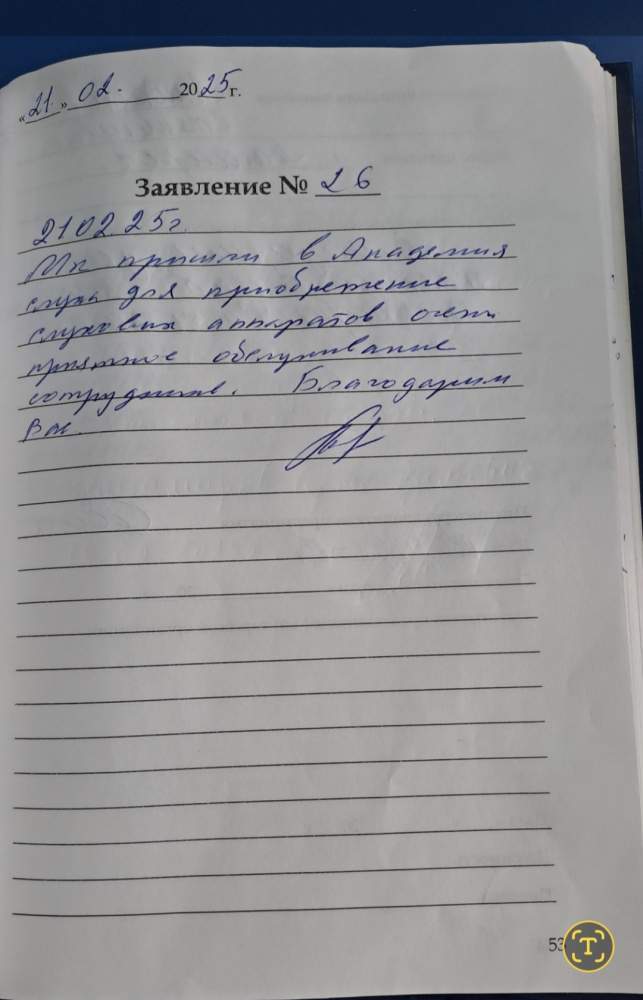 «21.» 02. 2025 г.
Заявление № 26
21 02 25г.
Мы пришли в Академия
слуха для приобретение
слуховых аппаратов очень
приятное обслуживание
сотрудников. Благодарим
Вас
53